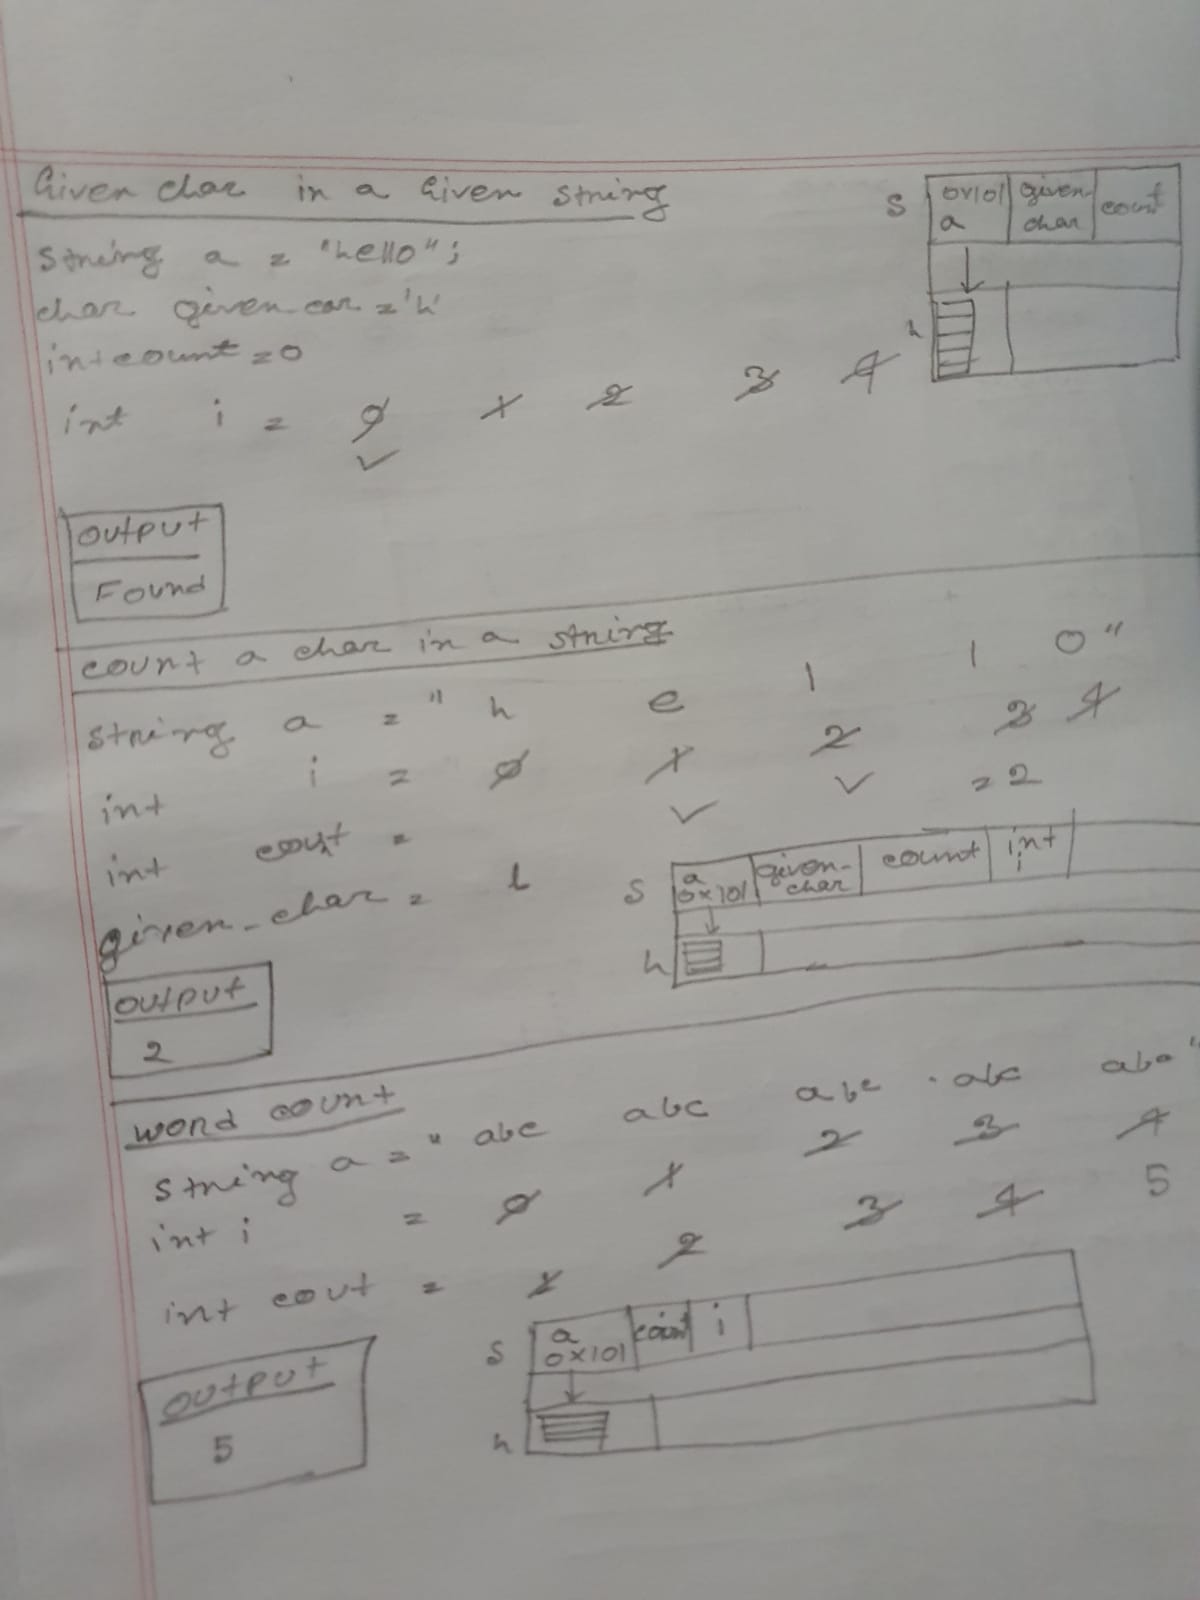 Given char in a Given string
string a = "hello";
char given-car = 'h'
int count = 0
int i = 0 1 2 3 4
S 0x101 given- count
a char
h
output
Found
count a char in a string
string a = "h e l l o"
int i = 0 1 2 3 4
int cout = = 2
given-char = l
S a given- count int
0x101 char i
h
output
2
word count
string a = "abc abc abc abc abc"
int i = 0 1 2 3 4
int cout = 1 2 3 4 5
S a count i
0x101
h
output
5